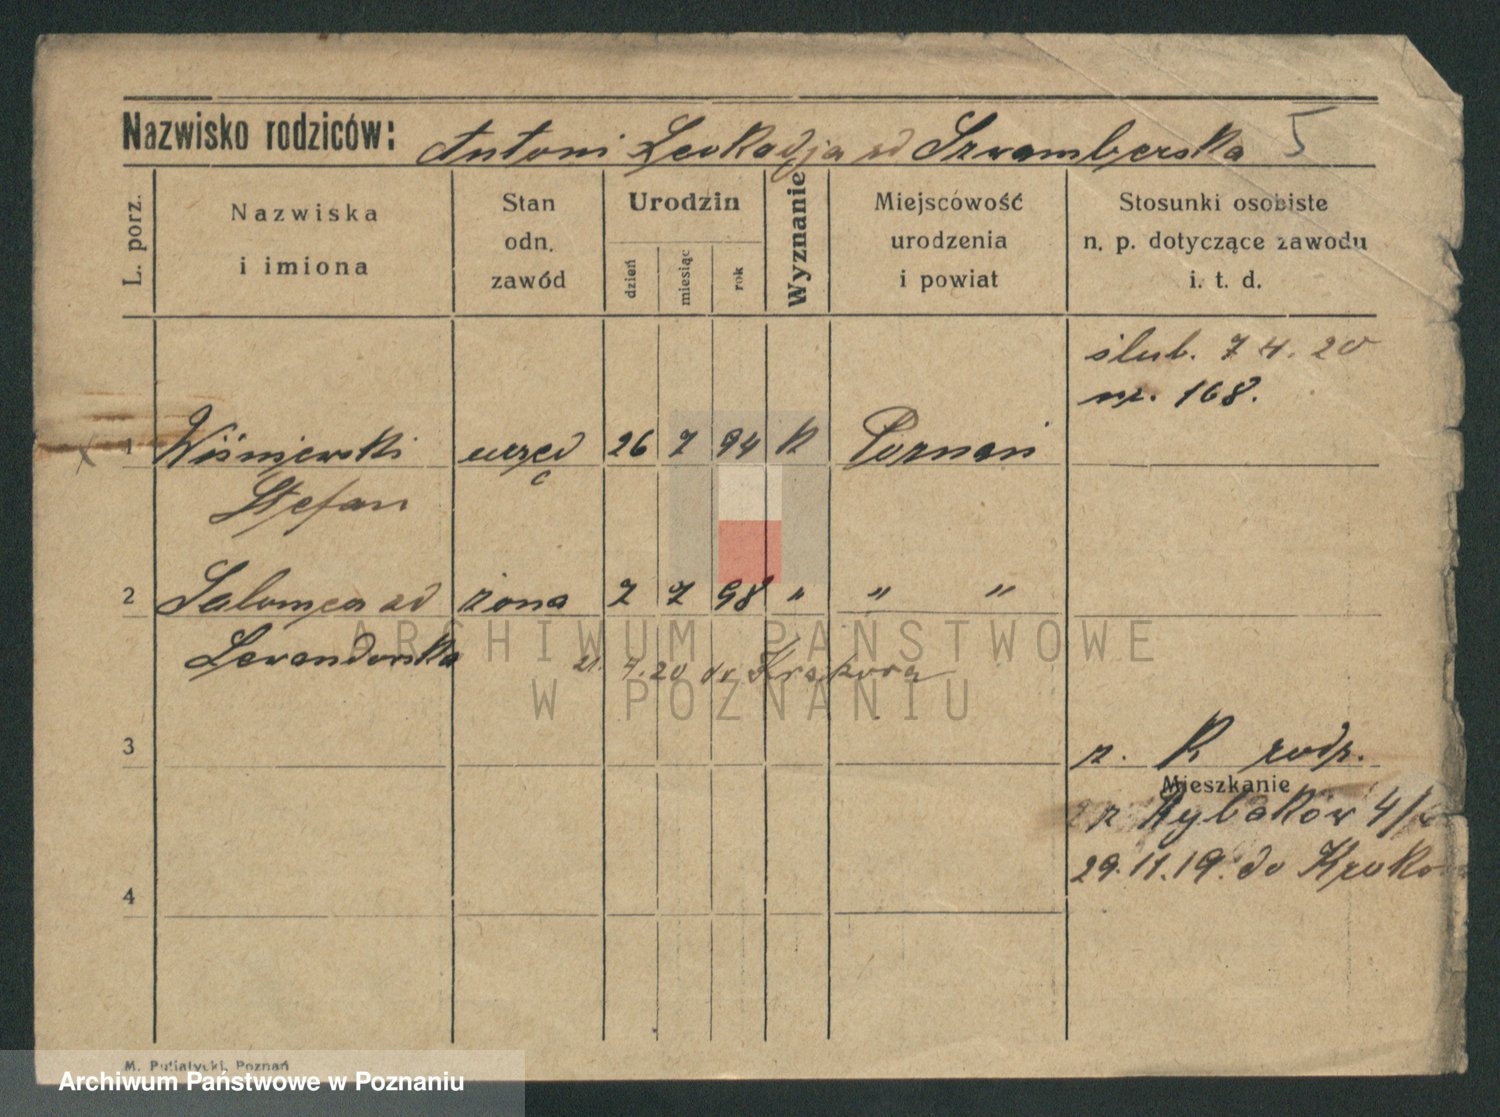 Nazwisko rodziców: Antoni Leokadja zd Szwamberska 5
L. porz.
Nazwiska
i imiona
Stan
odn.
zawód
Urodzin
dzień
miesiąc
rok
Wyznanie
Miejscowość
urodzenia
i powiat
Stosunki osobiste
n. p. dotyczące zawodu
i. t. d.
ślub. 7 4. 20
nr. 168.
x 1 Wiśniewski urzęd 26 7 94 K Poznań
Stefan
2 Salomea zd żona 7 7 98 " " "
Lewandowska
21. 4. 20 do Krakowa
3
z. K rodz.
Mieszkanie
z Rybaków 4/
29.11.19. do Krako
4
M. Putiatycki, Poznań
ARCHIWUM PAŃSTWOWE
W POZNANIU
Archiwum Państwowe w Poznaniu